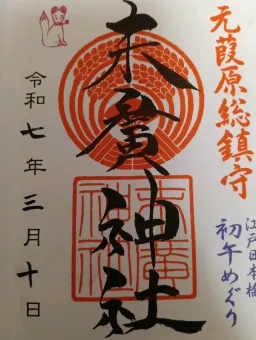 元葭原総鎮守
江戸日本橋
初午めぐり
末廣神社
末廣神社
令和七年三月十日